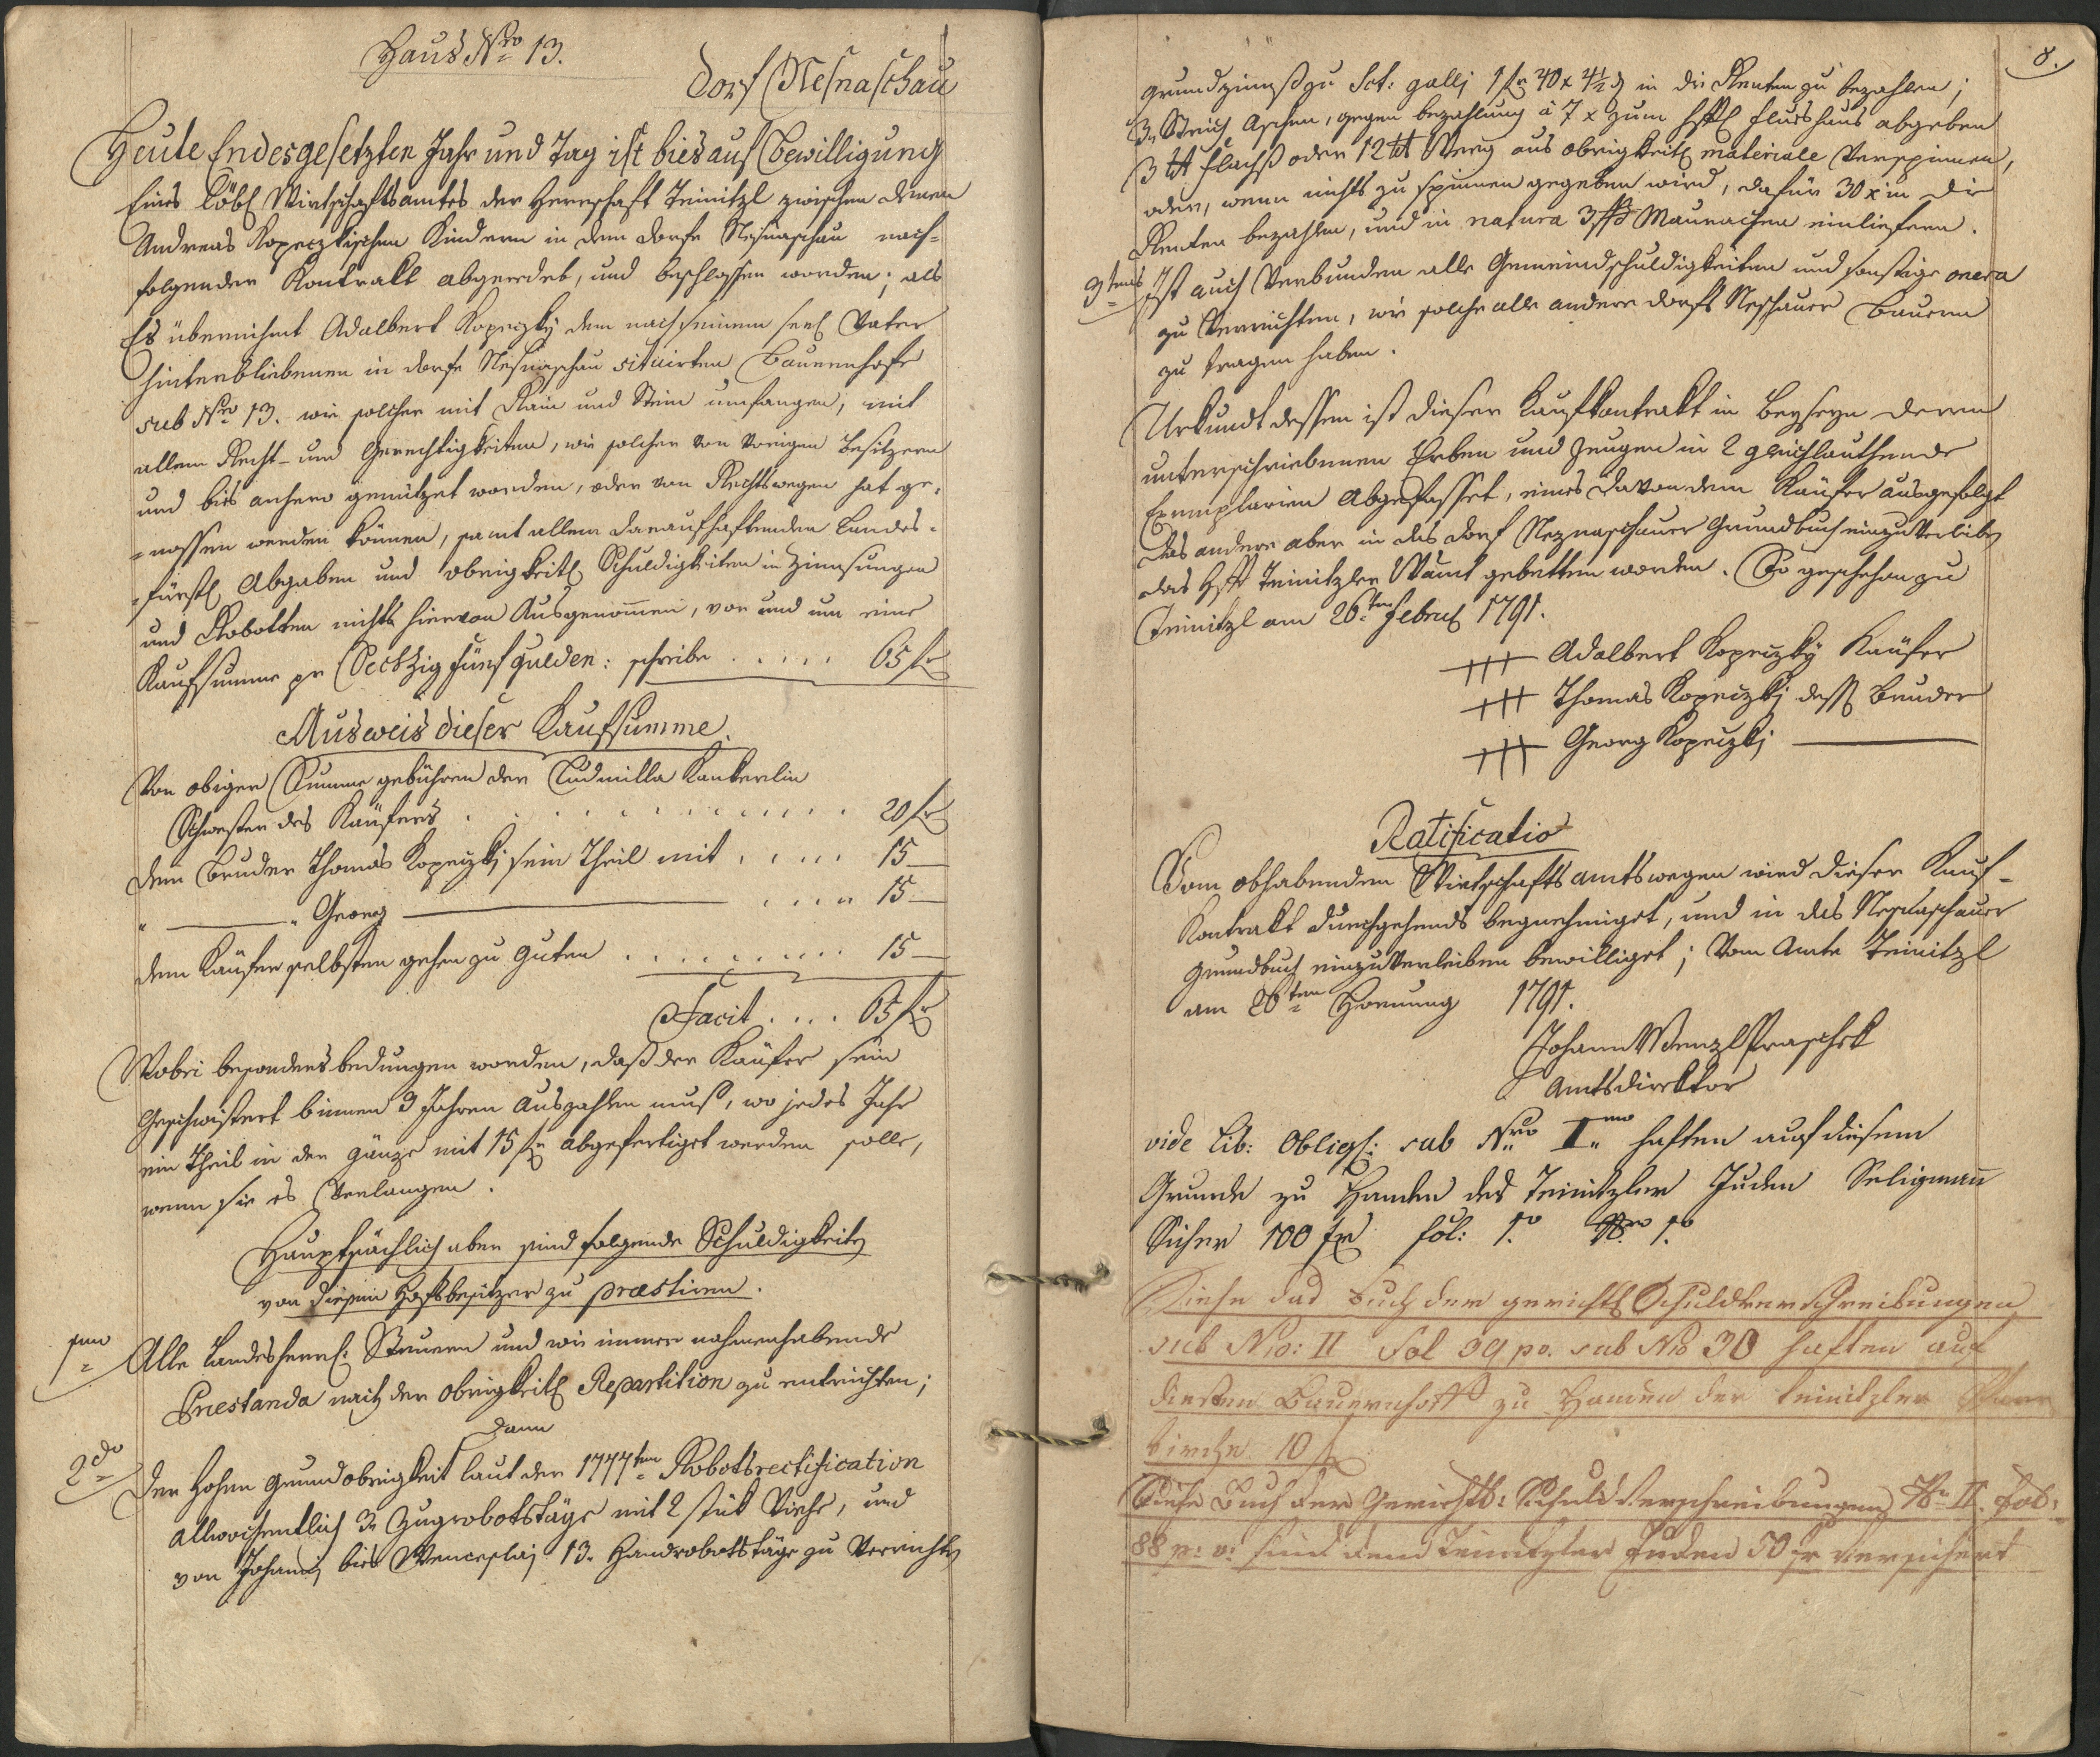 Haus Nro 13.
Dorf Nesnaschau
Heute Endesgesetzten Jahr und Tag ist bies auf Bewilligung
Eines Löbl Wirtschaftsamtes der Herrschaft Teinitzl zwischen denen
Andreas Kopeczkischen Kindern in dem Dorfe Nesnaschau nach-
folgender Kontrakt abgeredet, und beschlossen worden; als
Es übernihmt Adalbert Kopeczky den nach seinem seel Vater
hinterbliebenen in dorfe Nesnaschau situirten Bauernhofe
sub Nro 13. wie solcher mit Rain und Stein umfangen, mit
allem Recht- und Gerechtigkeiten, wie solcher von vorigen Besitzern
und bis anhero genützet worden, oder von Rechtswegen hat ge-
=nossen werden können, samt allen daraufhaftenden Landes-
=fürstl Abgaben und obrigkeitl Schuldigkeiten in Zinnsungen
und Robotten nichts hiervon Ausgenommen, vor und um eine
Kaufsumme pr Sechzig fünf Gulden: schreibe ..... 65 fr
Ausweis dieser Kaufsumme.
Von obiger Summe gebühren der Ludmilla Kankerlin
Schwester des Käufers . . . . . . . . . . . . . 20 fr
dem Bruder Thomas Kopeczkj sein Theil mit ..... 15 —
" ——— " Georg ——————— .... 15 —
dem Käufer selbsten gehen zu guten .......... 15 —
Facit .... 65 fr
Wobei besonders bedungen worden, daß der Käufer sein
Geschwistert binnen 3 Jahren auszahlen muß, wo jedes Jahr
ein Theil in der gänze mit 15 fr abgefertiget werden solle,
wenn sie es Verlangen.
Hauptsächlich aber sind folgende Schuldigkeiten
von diesem Hofsbesitzer zu præstiren.
1mo Alle Landesherrl: Steuern und wie immer nahmenhabende
Præstanda nach der Obrigkeitl Repartition zu entrichten;
Dann
2do Der Hohen Grundobrigkeit laut der 1777ten Robotsrectification
allwochentlich 3 Zugrobotstäge mit 2 stük Viehe, und
von Johanj bies Wenceslaj 13. Handrobotstäge zu Verrichten
8.
Grundzinnß zu Sct: gallj 1 fr 40 x 4½ d in die Renten zu bezahlen;
3 Strich Aschen, gegen bezahlung à 7 x zum hftl Flushaus abgeben
3 tt Flachß oder 12 tt Werg aus obrigkeitl materiale Verspinnen,
oder, wenn nichts zu spinnen gegeben wird, dafür 30 x in die
Renten bezahlen, und in natura 3 ß Maurachen einliefern.
3tens Ist auch Verbunden alle Gemeindschuldigkeiten und sonstige onera
zu Verrichten, wie solche alle andere dorfs Neschauer Bauern
zu tragen haben.
Urkundt dessen ist dieser Kaufkontrakt in Beyseyn deren
unterschriebenen Erben und Zeugen in 2 gleichlauthende
Exemplarien Abgefasset, eines davon dem Käufer ausgefolgt
das andere aber in das dorf Neznaschauer Grundbuch einzuverleiben
das Hft Teinitzler WAmt gebetten worden. So geschehen zu
Teinitzl am 26ten Februl 1791.
+++ Adalbert Kopeczky Käufer
+++ Thomas Kopeczkj dess Bruder
+++ Georg Kopeczkj ———
Ratificatio
Vom obhabenden Wirtschaftsamtswegen wird dieser Kauf-
Kontrakt durchgehends begnehmiget, und in das Nesnaschauer
Grundbuch einzuverleiben bewilliget; Vom Amte Teinitzl
am 26ten Hornung 1791.
Johann Wenzl Praschek
Amtsdirektor
vide Lib: Obligl: sub Nro Imo haften auf diesem
Grunde zu Handen des Teinitzler Juden Seligmann
Sicher 100 fr fol: 1o Nro 1o
Siehe das Buch der gerichtl Schuldverschreibungen
sub Nro: II Fol 39 pv. sub No 30 haften auf
diesen Bauernhoff zu Handen der Teinitzler Pfarr
kirche 10 fr
Siehe Buch der Gerichts: Schuldverschreibungen No II. Fol:
88 p: v: sind dem Teinitzler Juden 50 fr versichert